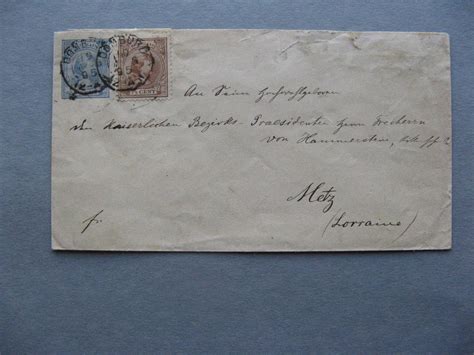 DOMBURG DOMBURG
CENT
An Seine Hochwohlgeboren
den Kaiserlichen Bezirks-Praesidenten Herrn Freiherrn
von Hammerstein,
Metz
(Lorraine)
fr.